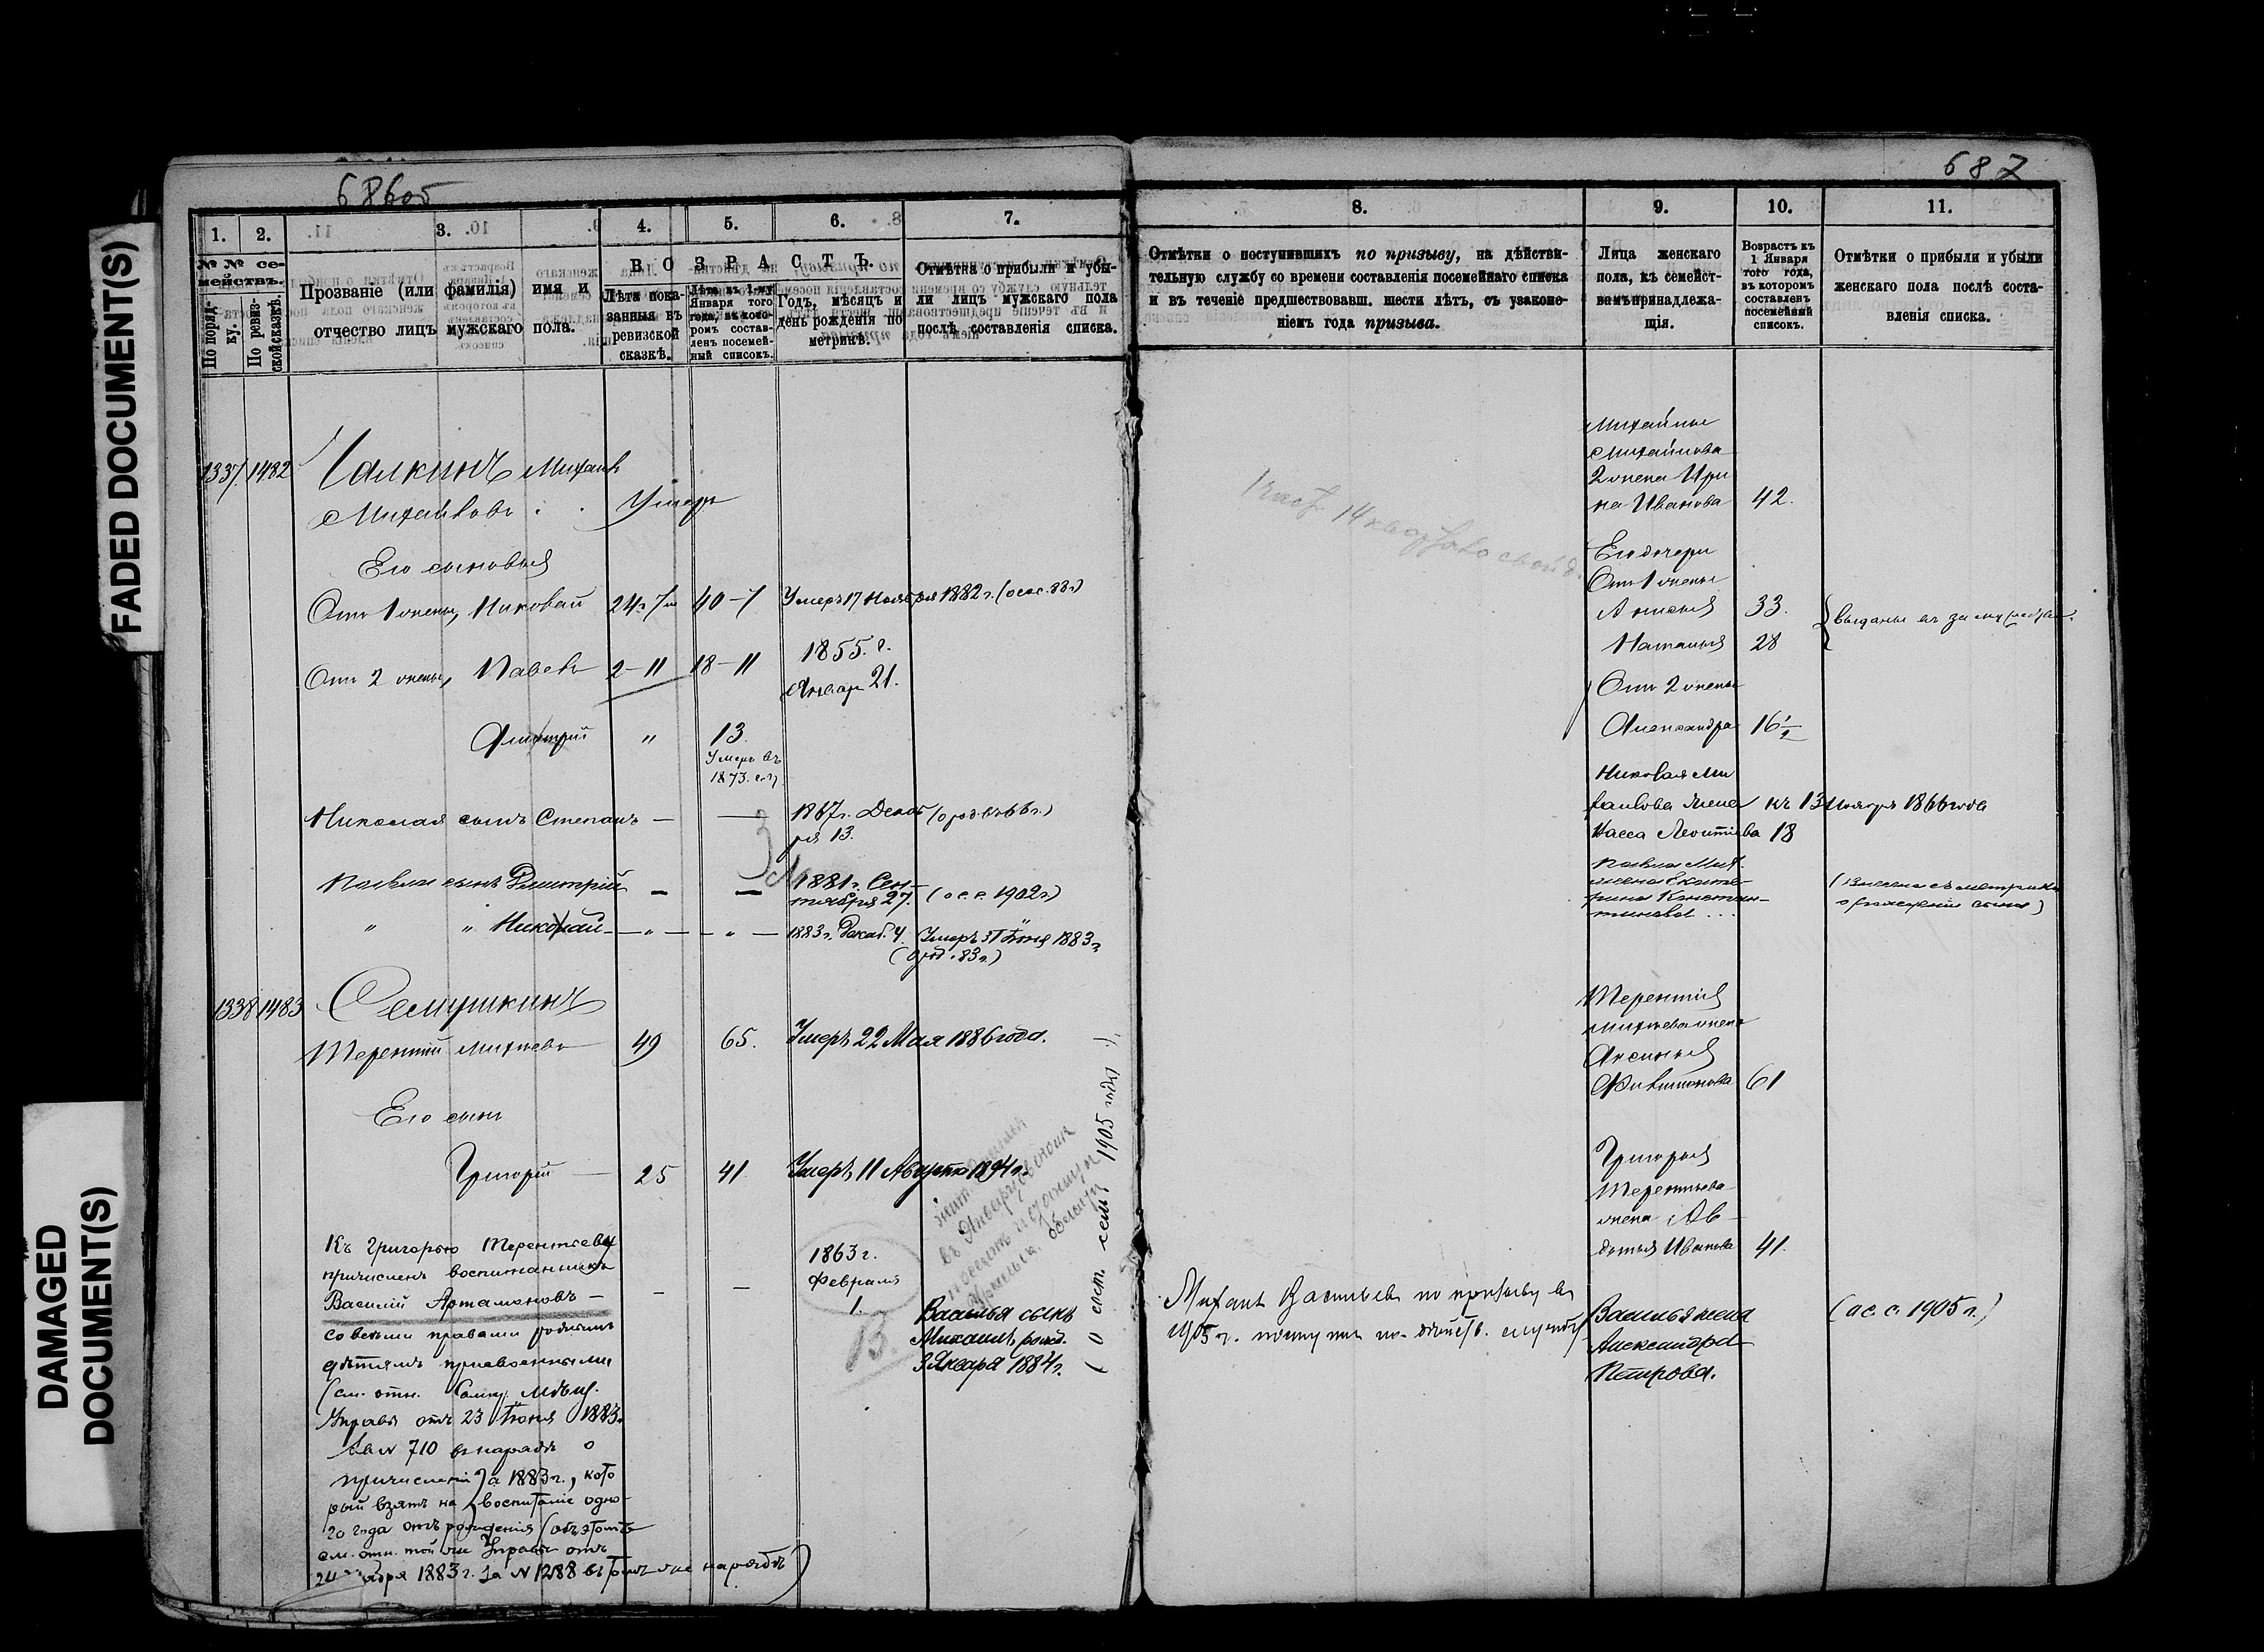 FADED DOCUMENT(S)
DAMAGED
DOCUMENT(S)
686об
1. 2. 3. 4. 5. 6. 7.
№ № се-
мействъ.
По поряд-
ку.
По ревиз-
ской сказкѣ.
Прозваніе (или фамилія) имя и
отчество лицъ мужскаго пола.
ВОЗРАСТЪ.
Лѣта пока-
занныя въ
ревизской
сказкѣ.
Лѣта къ 1-му
Января того
года, въ кото-
ромъ состав-
ленъ посемей-
ный списокъ.
Годъ, мѣсяцъ и
день рожденія по
метрикѣ.
Отмѣтка о прибыли и убы-
ли лицъ мужскаго пола
послѣ составленія списка.
1337. 1482 Чалкинъ Михаилъ
Михайловъ Умеръ
Его сыновья
Отъ 1 жены, Николай 24 40 Умеръ 17 Ноября 1882 г.
Отъ 2 жены, Павелъ 2 – 11 18 – 11 1855. г.
Января 21.
Дмитрий " 13.
Умеръ въ
1873.
Николая сынъ Степанъ — — 1867 г. Декаб
ря 13.
Павла сынъ Дмитрій – – 1881 г. Сен-
тября 27. (о с. с. 1902 г)
" " Николай — " — " — 1883 г. Декаб. 4. Умеръ Іюня 1883 г.
83 г.)
1338 1483 Семушкинъ
Терентій Михѣевъ 49 65. Умеръ 22 Мая 1886 года.
Его сынъ
Григорій — 25 41 Умеръ 11 Августа 1894 г.
Къ Григорью Терентьеву
причисленъ воспитанникъ
Василій Артамоновъ – – – 1863 г.
Февраля
1.
со всѣми правами роднымъ
дѣтямъ присвоенными
(см. отн. Мѣщ.
Управы отъ 23 Іюня 1883 г.
за № 710 въ нарядѣ о
причисленіи за 1883 г., кото
рый взятъ на воспитаніе одно-
го года отъ рожденія (объ этомъ
см. отн. той же Управы отъ
24 ября 1883 г. за № 1288 въ томъ же нарядѣ)
В.
Василья сынъ
Михаилъ, рожд.
3 Января 1884 г.
1905 года)
687
8. 9. 10. 11.
Отмѣтки о поступившихъ по призыву, на дѣйстви-
тельную службу со времени составленія посемейнаго списка
и въ теченіе предшествовавш. шести лѣтъ, съ указане-
ніемъ года призыва.
Лица женскаго
пола, къ семейст-
вамъ принадлежа-
щія.
Возрастъ къ
1 Января
того года,
въ которомъ
составленъ
посемейный
списокъ.
Отмѣтки о прибыли и убыли
женскаго пола послѣ соста-
вленія списка.
Михайлы
Михайлова
2 жена Ири
на Иванова 42.
Его дочери
Отъ 1 жены
Анисья 33.
Наталья 28
выданы въ замужество.
Отъ 2 жены
Александра 16
Николая Ми
хайлова жена къ 13 Ноября 1866 года
Леонтьева 18
Павла Мих.
жена Екате-
рина Констан-
тинова ...
(Внесена съ метрики
о рожденіи сына)
Терентія
Михѣева жена
Аксинья
Филимонова 61
Григорья
Терентьева
жена Ав-
дотья Иванова 41.
Михаилъ Васильевъ по призыву въ
1905 г. поступилъ на дѣйств. службу
Василья жена
Александра
Петрова.
(о с. с. 1905 г.)